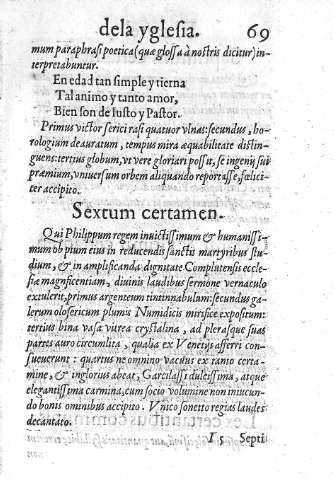 dela yglesia. 69
mum paraphrasi poetica (quæ glossa à nostris dicitur) in-
terpretabuntur.
En edad tan simple y tierna
Tal animo y tanto amor,
Bien son de Iusto y Pastor.
Primus victor serici rasi quatuor vlnas: secundus, ho-
rologium deauratum, tempus mira æquabilitate distin-
guens: tertius globum, vt vere gloriari possit, se ingenij sui
præmium, vniuersum orbem aliquando reportasse, fœlici-
ter accipito.
Sextum certamen.
Qui Philippum regem inuictissimum & humanissi-
mum ob pium eius in reducendis sanctis martyribus stu-
dium, & in amplificanda dignitate Complutensis eccle-
siæ magnificentiam, diuinis laudibus sermone vernaculo
extulerit, primus argenteum tintinnabulum: secundus ga-
lerum olosericum plumis Numidicis mirifice expositum:
tertius bina vasa vitrea crystalina, ad pleraque suas
partes auro circumlita, qualia ex Venetijs afferri con-
sueuerunt: quartus ne omnino vacuus ex tanto certa-
mine, & inglorius abeat, Garcilassi dulcissima, atque
elegantissima carmina, cum socio volumine non iniucun-
do bonis ominibus accipito. Vnico sonetto regias laudes
decantato.
I 5 Septi